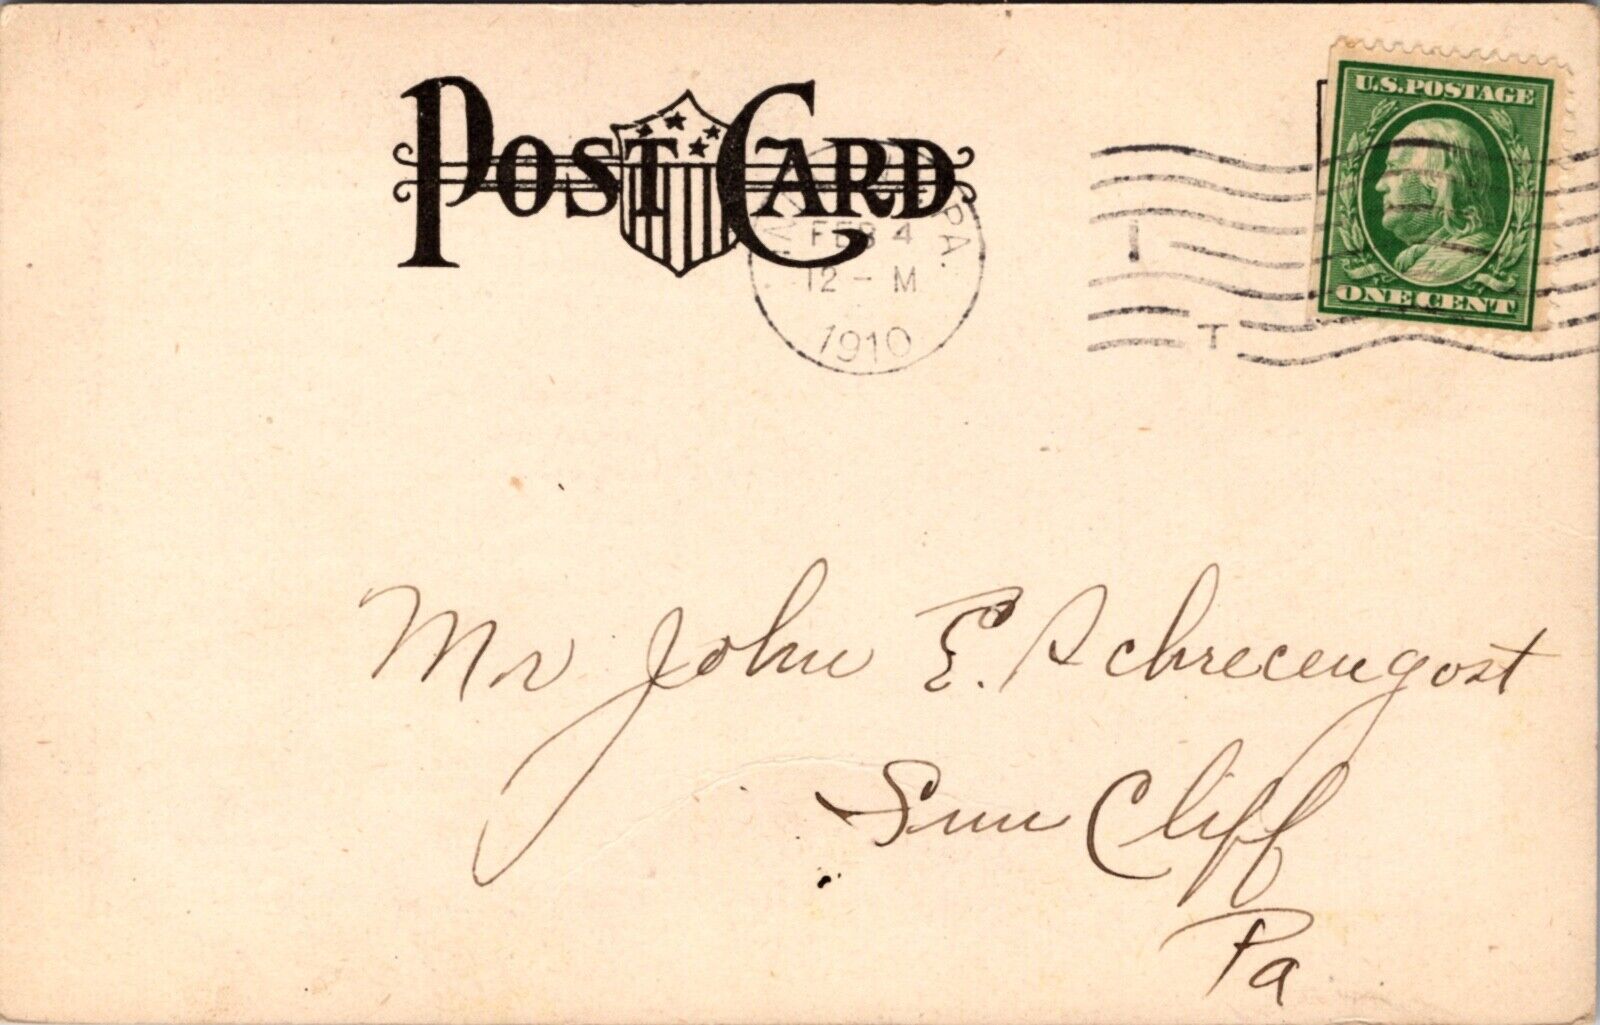 POST CARD
U.S. POSTAGE
PA.
FEB 4
12 - M
1910
T
ONE CENT
Mr John E. Schrecengost
Sun Cliff
Pa